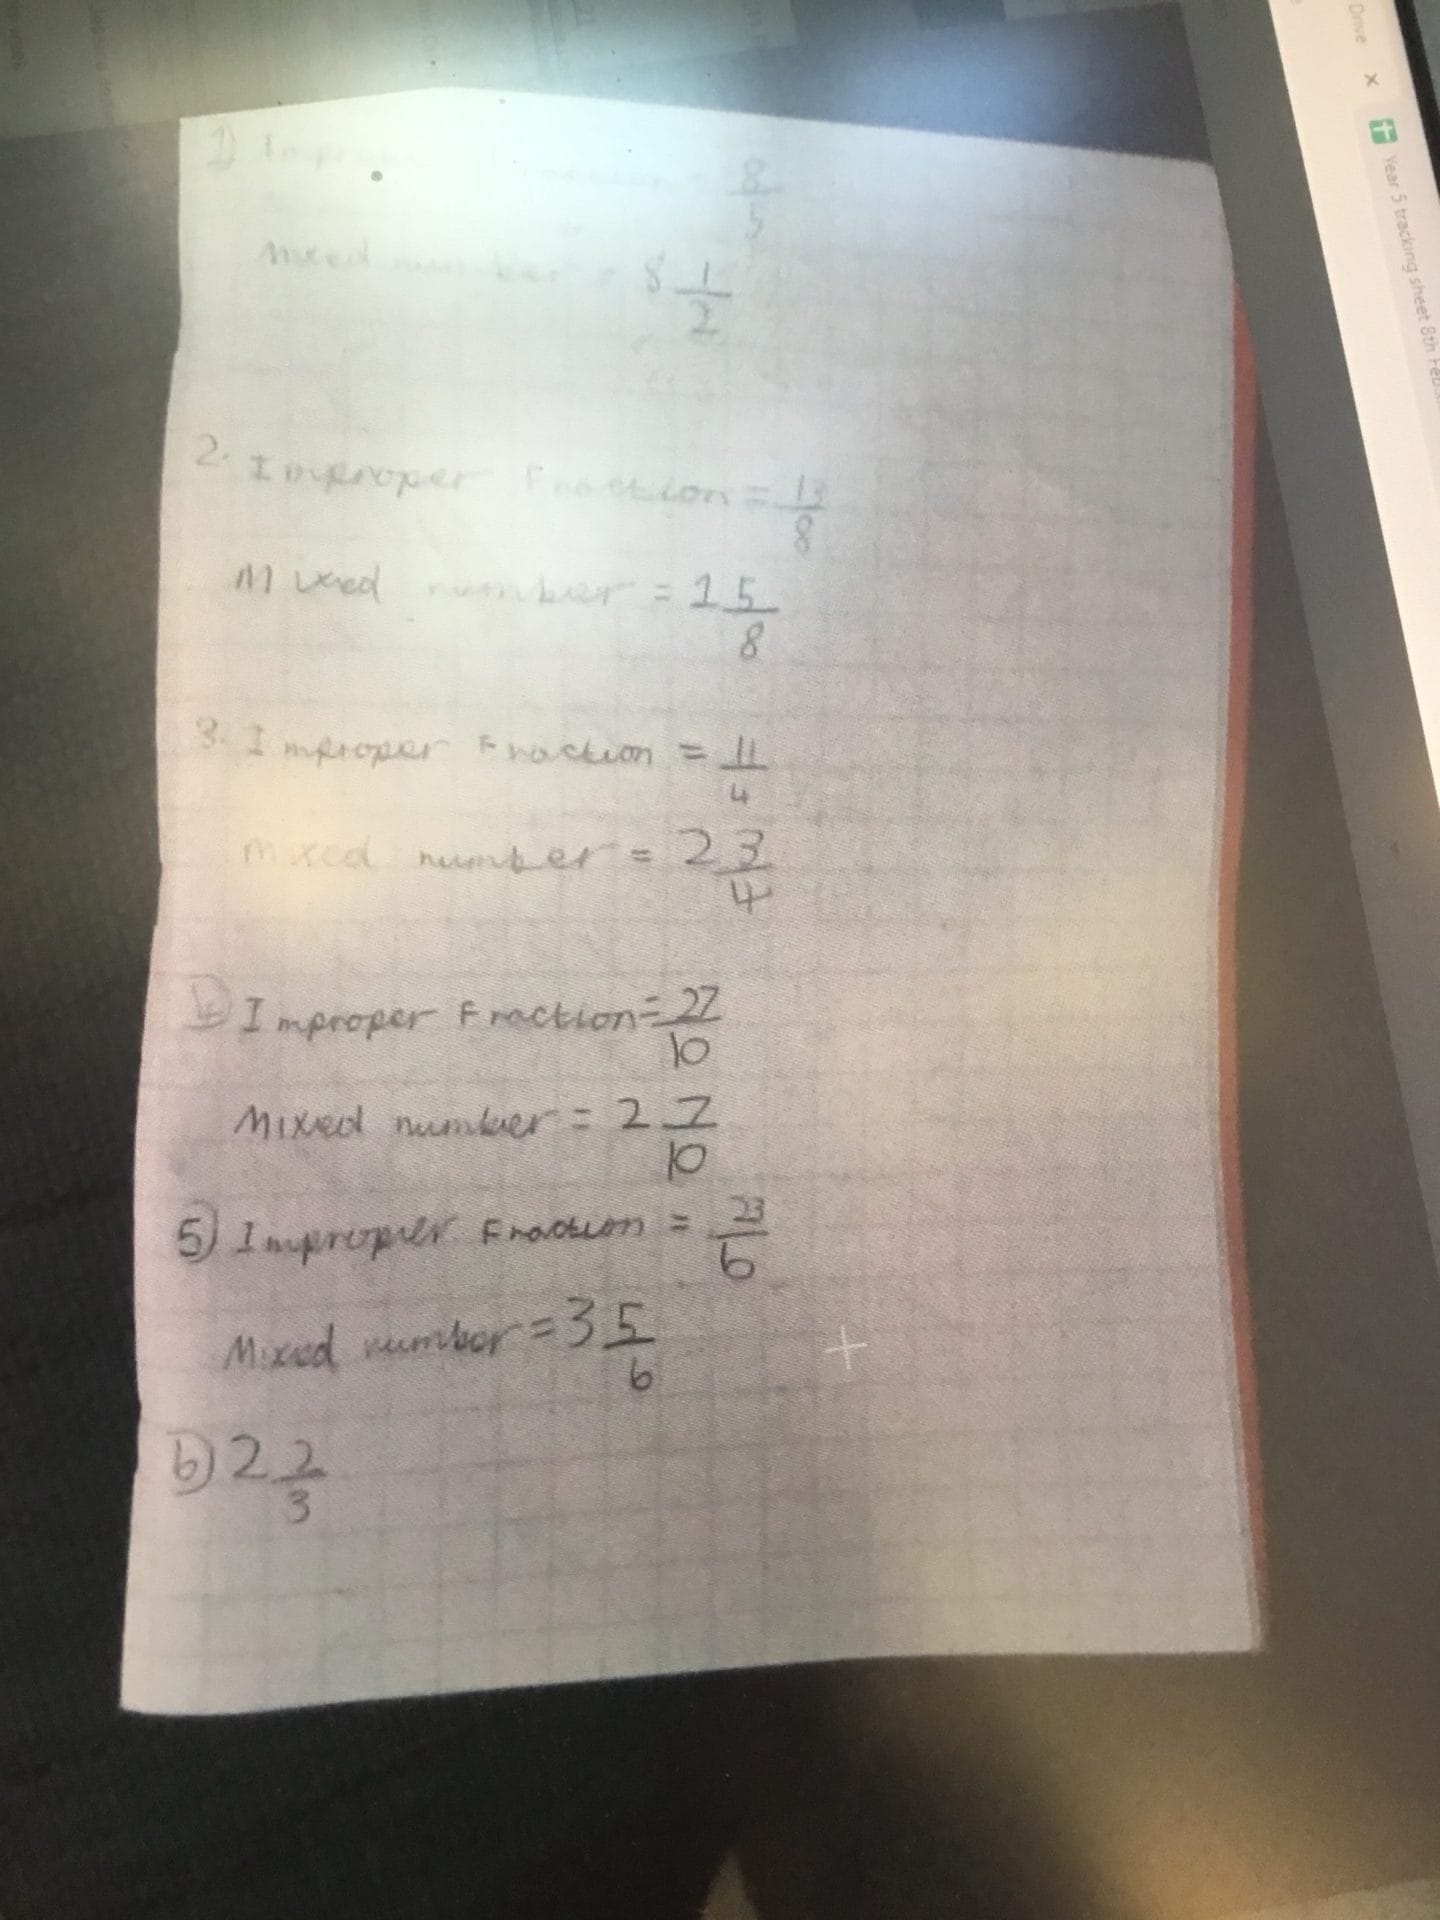 1) Improper Fraction = 8/5
Mixed number = 8 1/2
2. Improper Fraction = 13/8
Mixed number = 1 5/8
3. Improper Fraction = 11/4
Mixed number = 2 3/4
4) Improper Fraction = 27/10
Mixed number = 2 7/10
5) Improper Fraction = 23/6
Mixed number = 3 5/6
6) 2 2/3
Drive
Year 5 tracking sheet 8th Feb